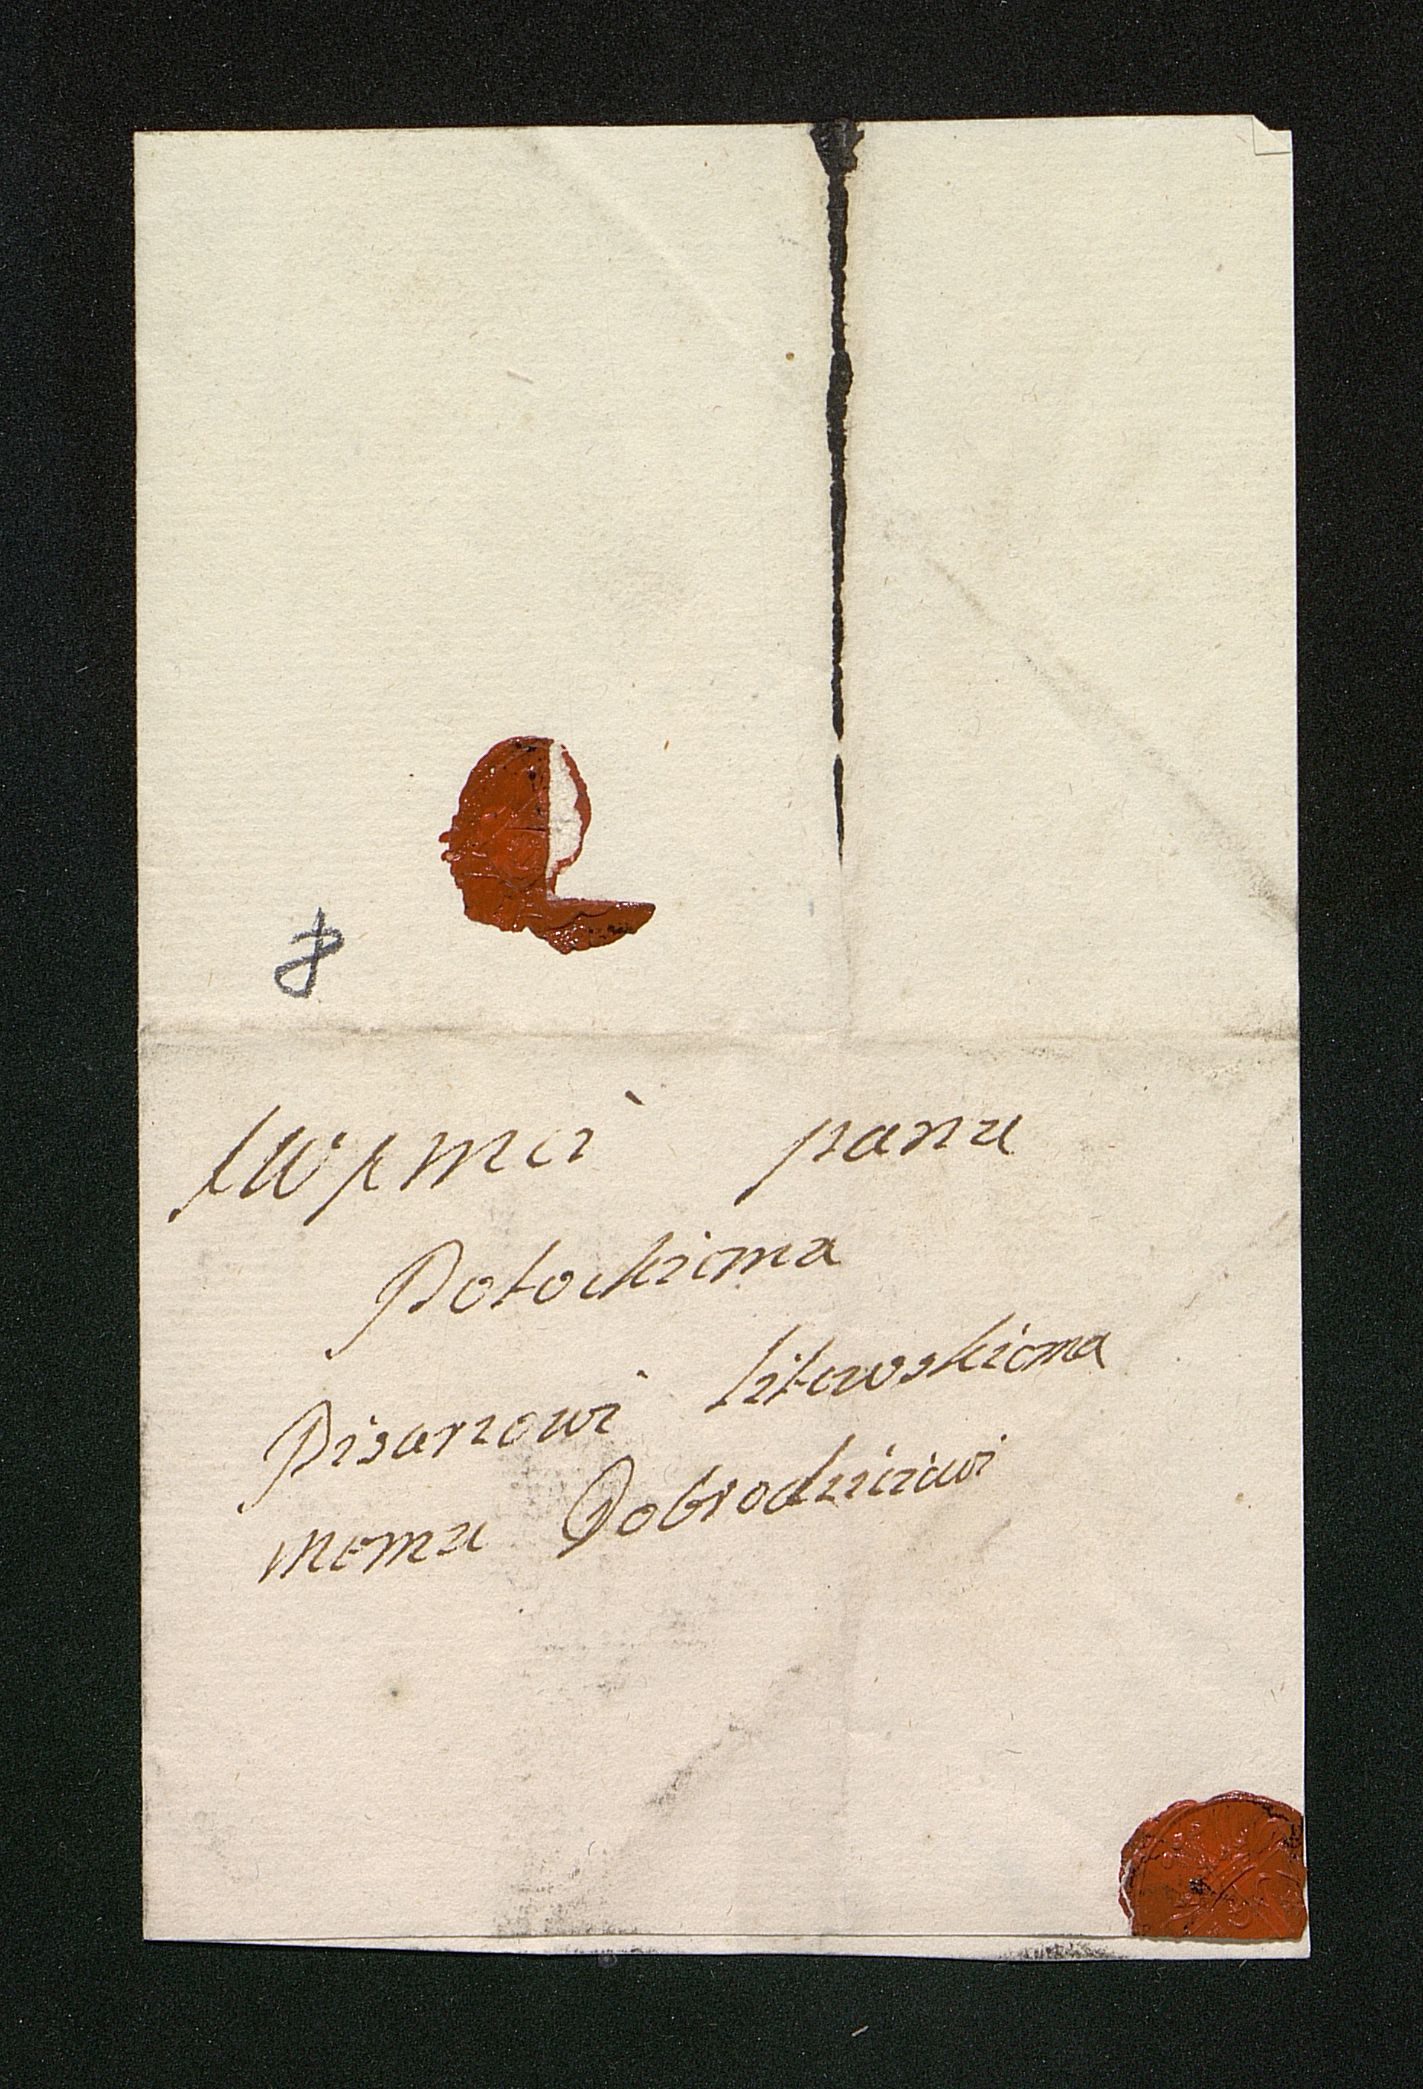 JWJPmci panu
Potockiemu
Pisarzowi litewskiemu
memu Dobrodziejowi